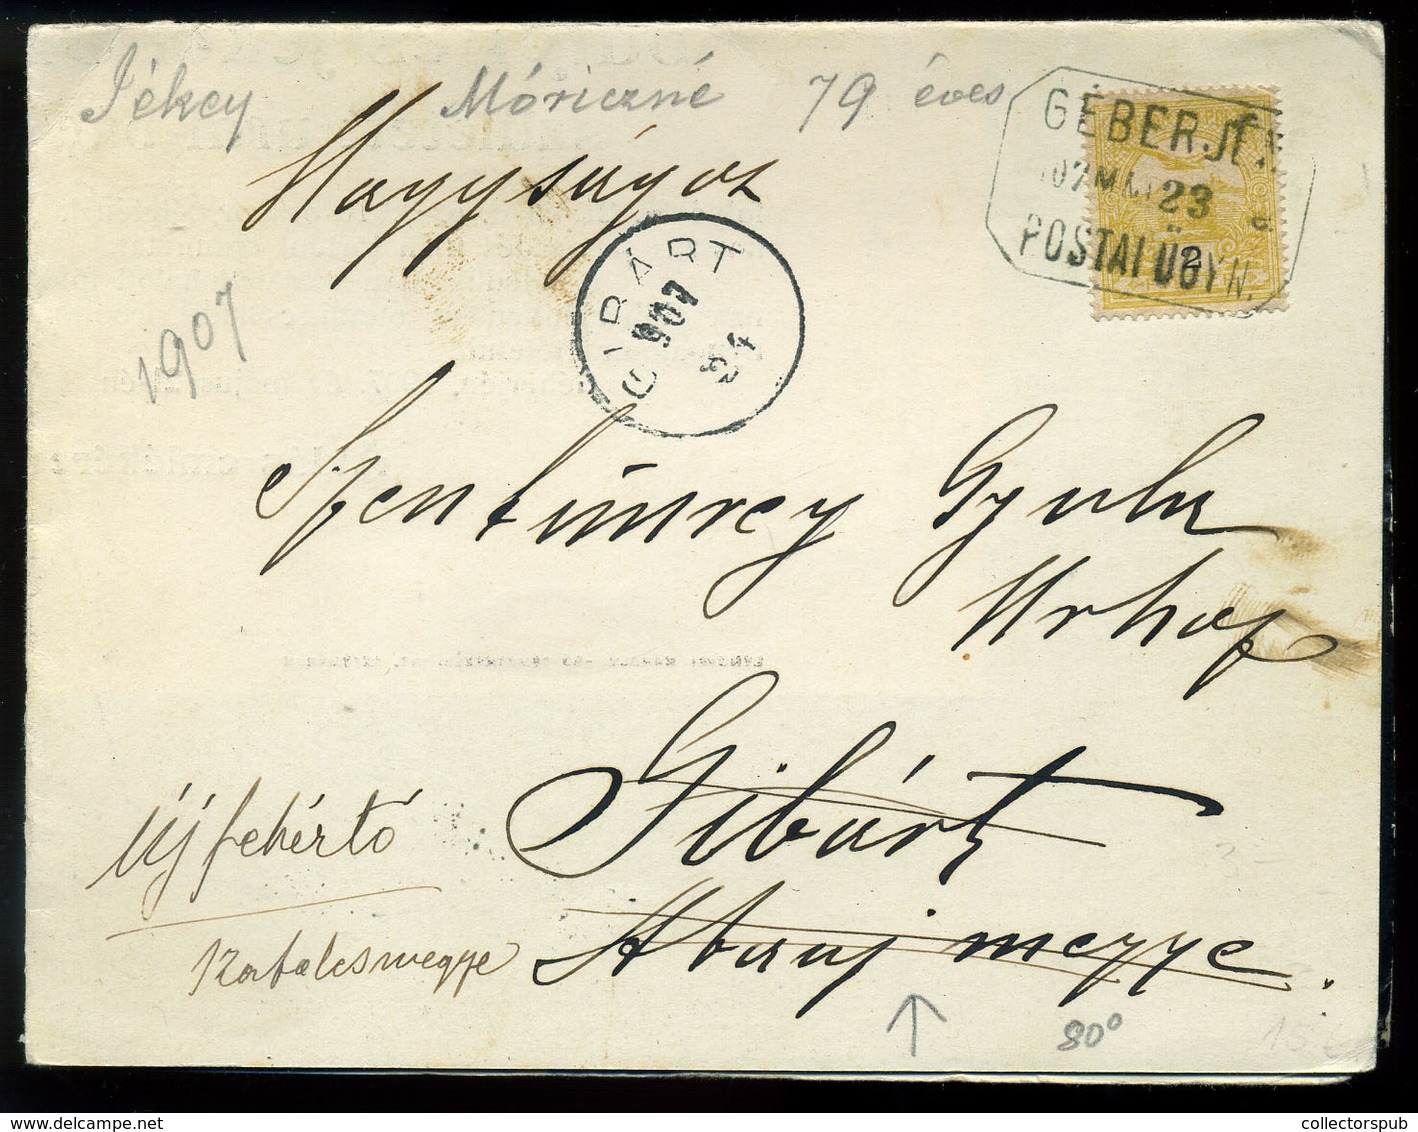 Jékey Móriczné 79 éves
GÉBERJÉN
907 MÁJ 23
POSTAI ÜGYN.
2
Nagyságos
GIBÁRT
907
24
1907
Szentimrey Gyula
Urhof
Gibárt
Új fehértó
Abauj megye.
Szabolcsmegye
80°
collectorspub.com